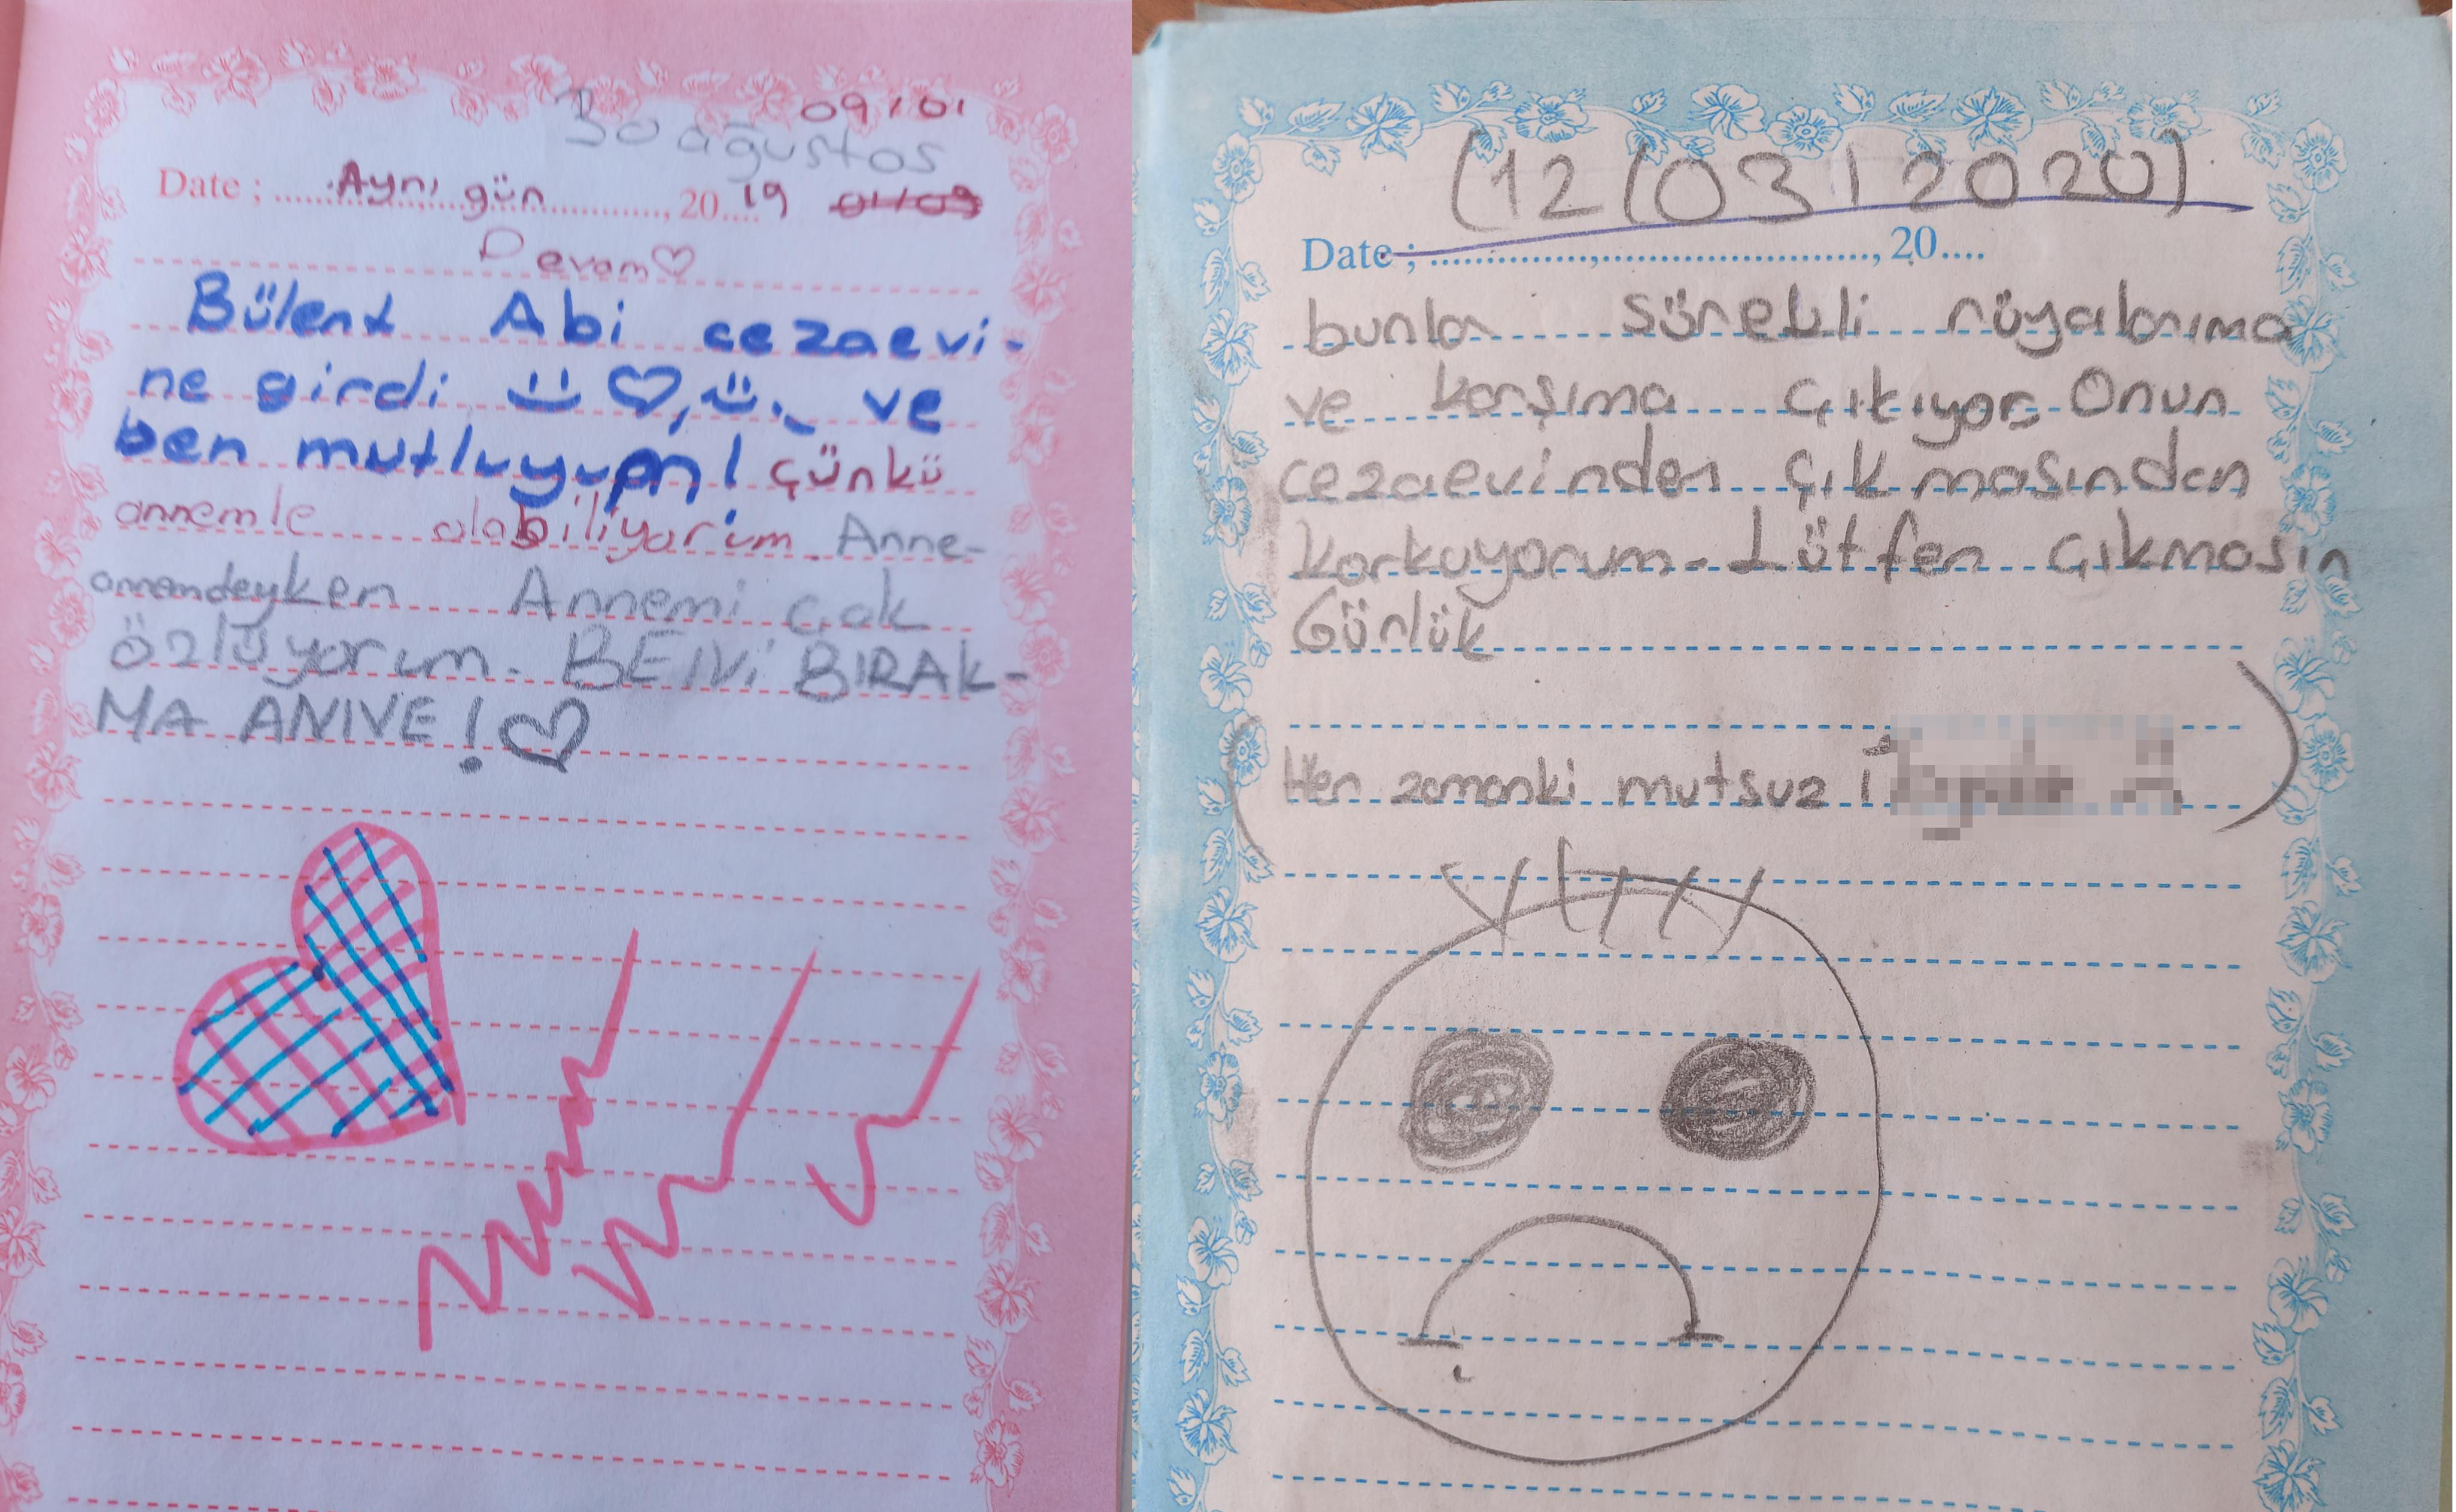 09/01
30 ağustos
Date ; Aynı gün , 20 19 01/09
Devam
Bülent Abi cezaevi-
ne girdi ve
ben mutluyum! çünkü
annemle olabiliyorum. Anne-
annemdeyken Annemi çok
özlüyorum. BENİ BIRAK-
MA ANNE!
(12/03/2020)
Date ; , 20
bunlar sürekli rüyalarıma
ve karşıma çıkıyor. Onun
cezaevinden çıkmasından
korkuyorum. Lütfen çıkmasın
Günlük
Her zamanki mutsuz